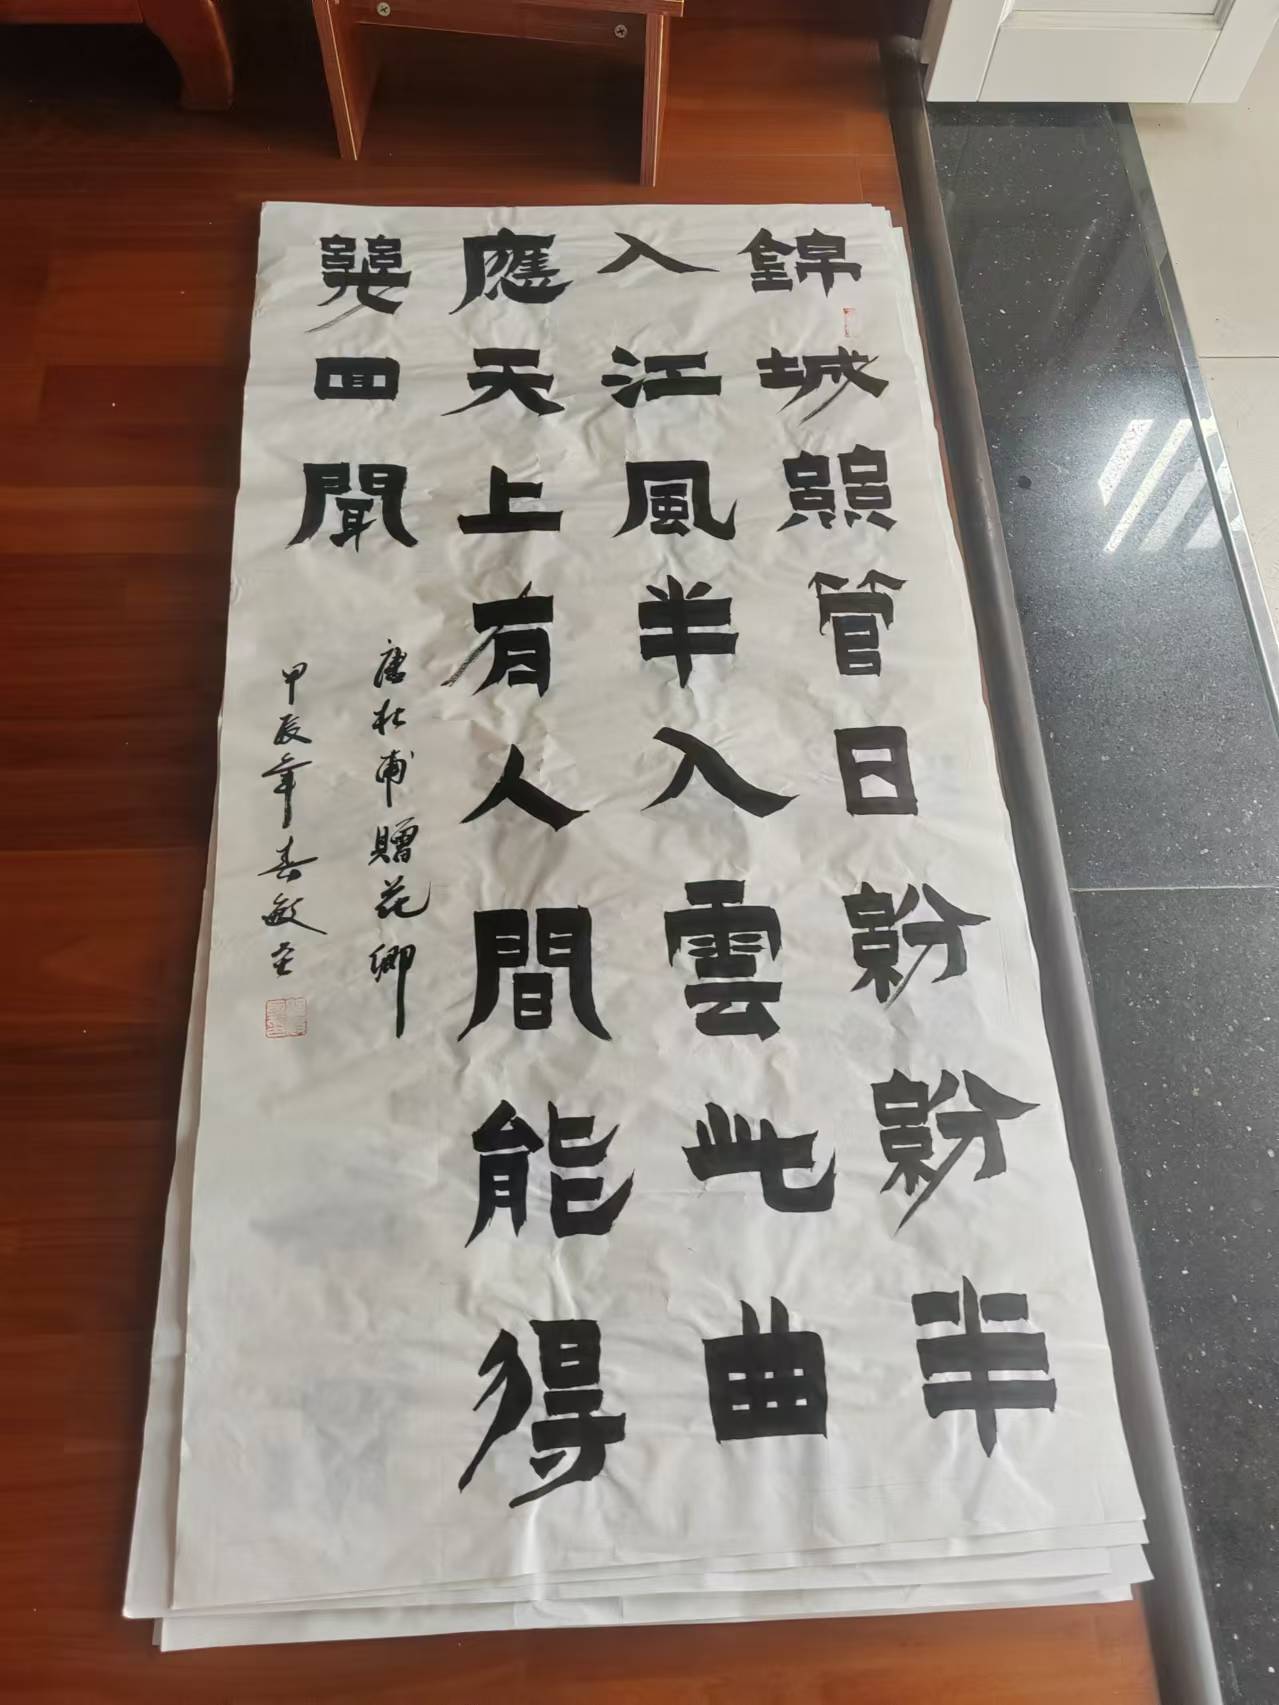 錦城絲管日紛紛半
入江風半入雲此曲
應天上有人間能得
幾回聞
唐杜甫贈花卿
甲辰年春敏